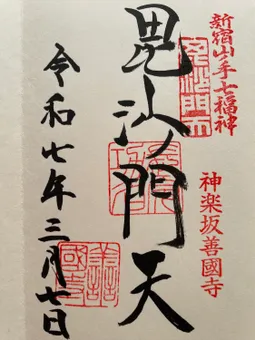 新宿山ノ手七福神
神楽坂善國寺
毘沙門天
毘沙門天
令和七年三月七日
善國寺